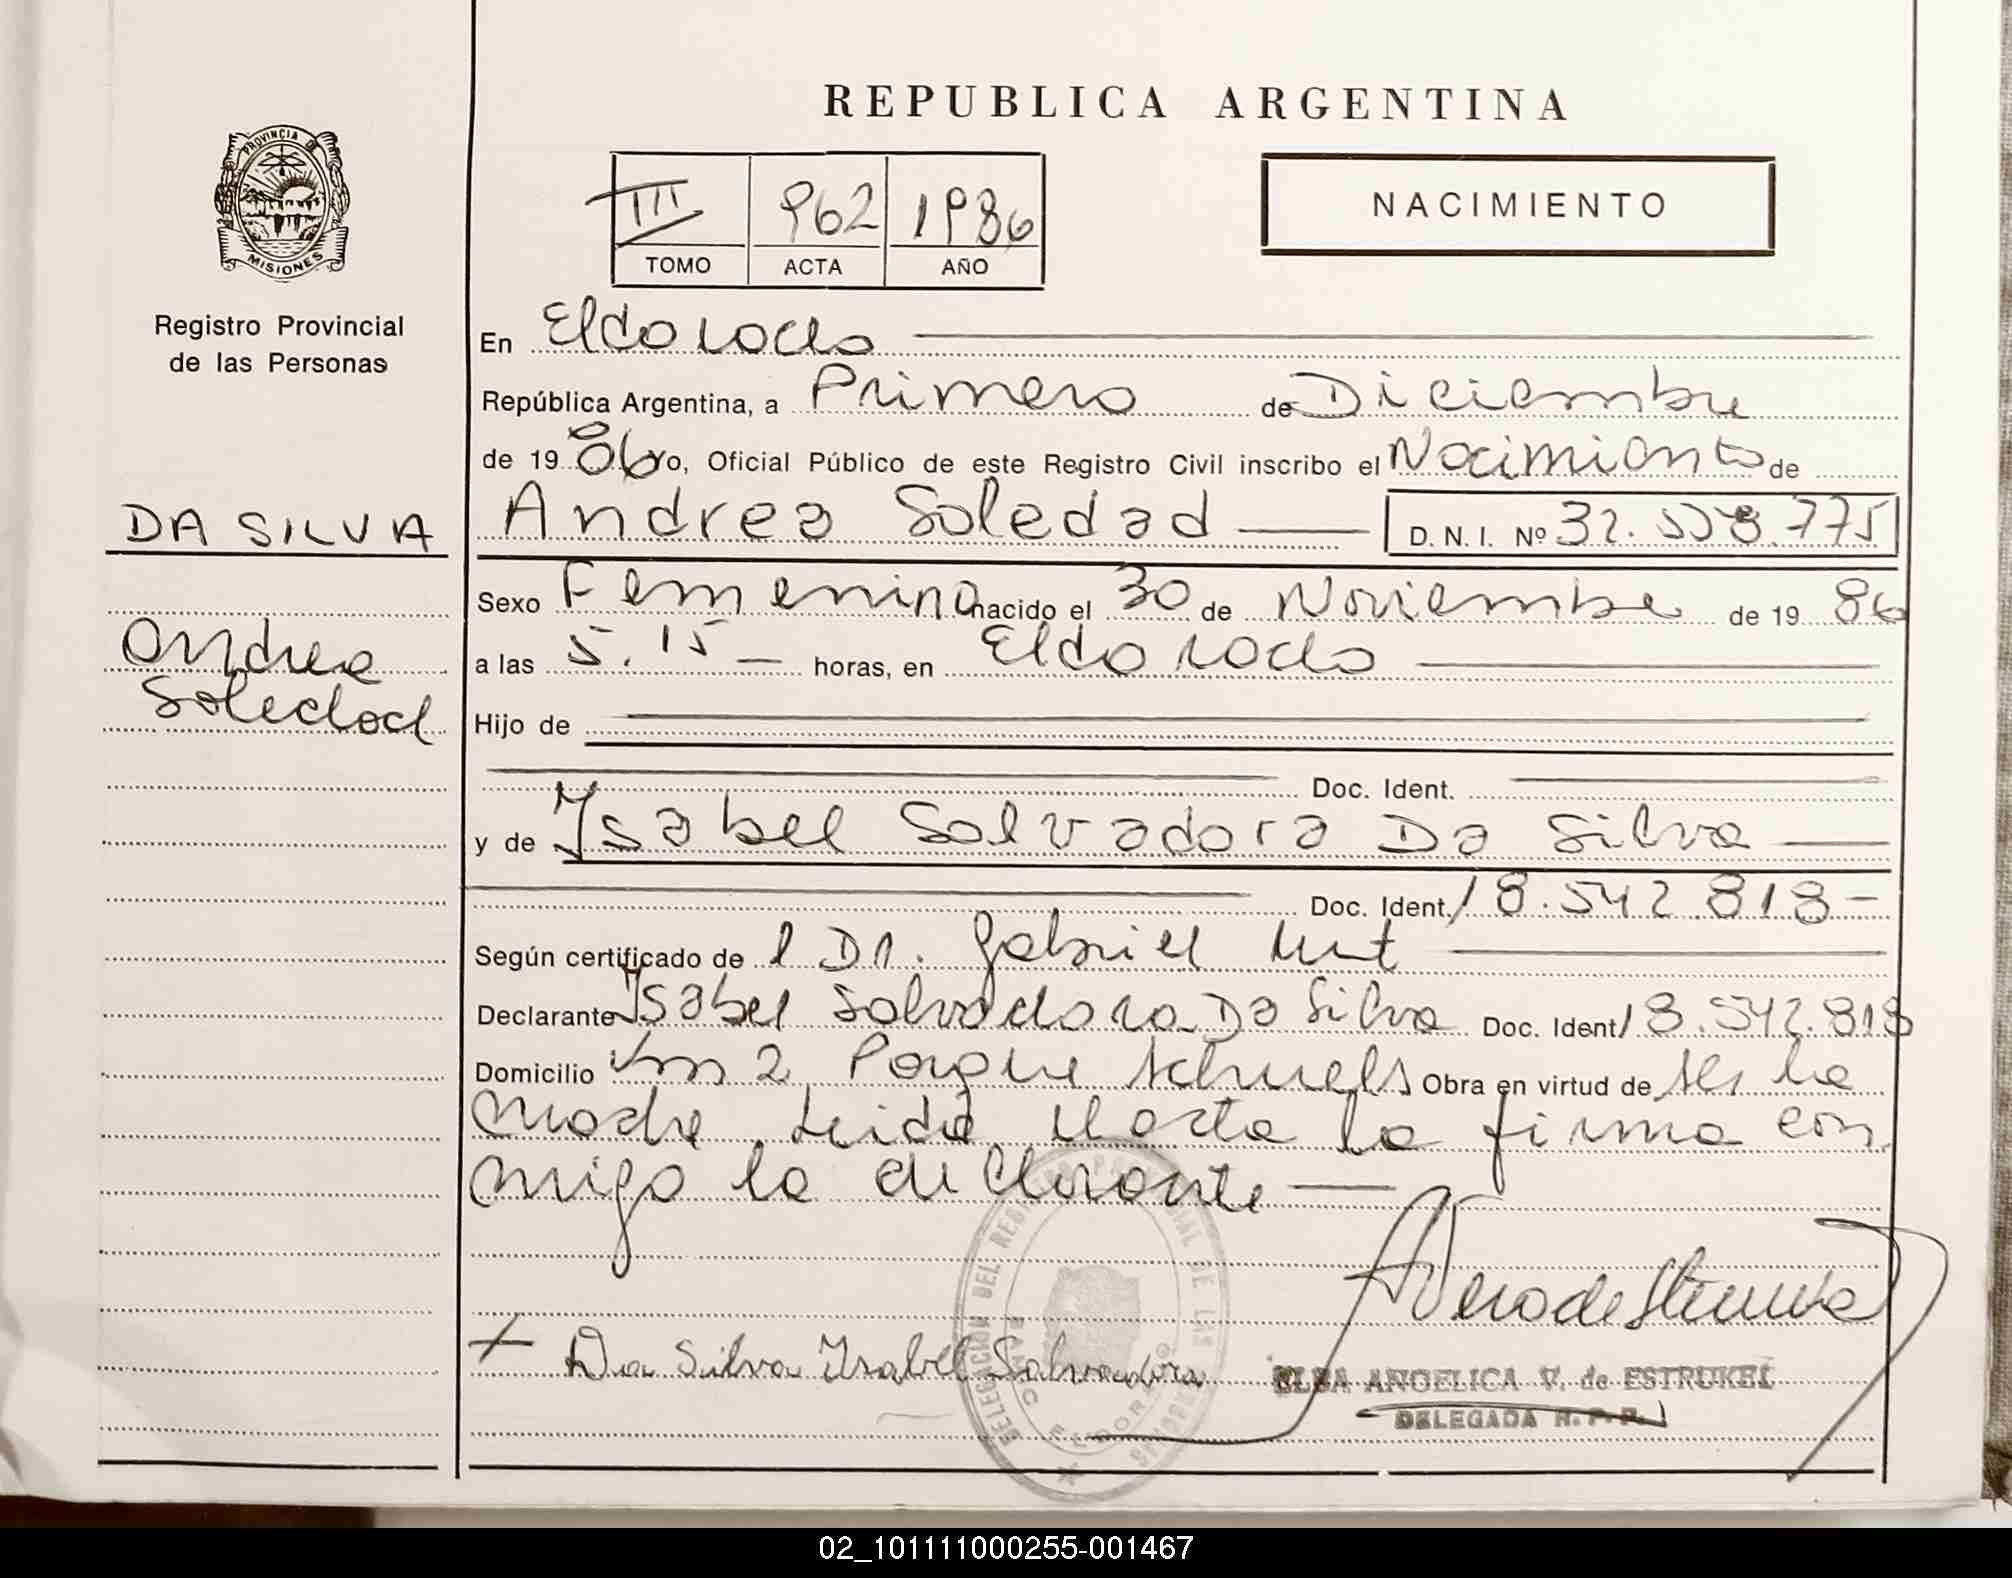 REPUBLICA ARGENTINA
PROVINCIA DE
MISIONES
Registro Provincial
de las Personas
III 962 1986
TOMO ACTA AÑO
NACIMIENTO
En Eldorado
República Argentina, a Primero de Diciembre
de 19 86 yo, Oficial Público de este Registro Civil inscribo el Nacimiento de
DA SILVA
Andrea Soledad D. N. I. Nº 32.558.775
Sexo Femenina nacido el 30 de Noviembre de 19 86
Andrea
a las 5.15 horas, en Eldorado
Soledad
Hijo de
Doc. Ident.
y de Ysabel Salvadora Da Silva
Doc. Ident. 18.542.818
Según certificado de l Dr. Gabriel
Declarante Ysabel Salvadora Da Silva Doc. Ident 18.542.818
Domicilio Km 2 Parque Schuels Obra en virtud de ser la
madre Leida el acta la firma con
migo la declarante
DELEGACION DEL REGISTRO PROVINCIAL DE LAS PERSONAS
ELDORADO
MISIONES
Da Silva Ysabel Salvadora
ELSA ANGELICA V. de ESTRUKEL
DELEGADA R. P. P.
02_101111000255-001467